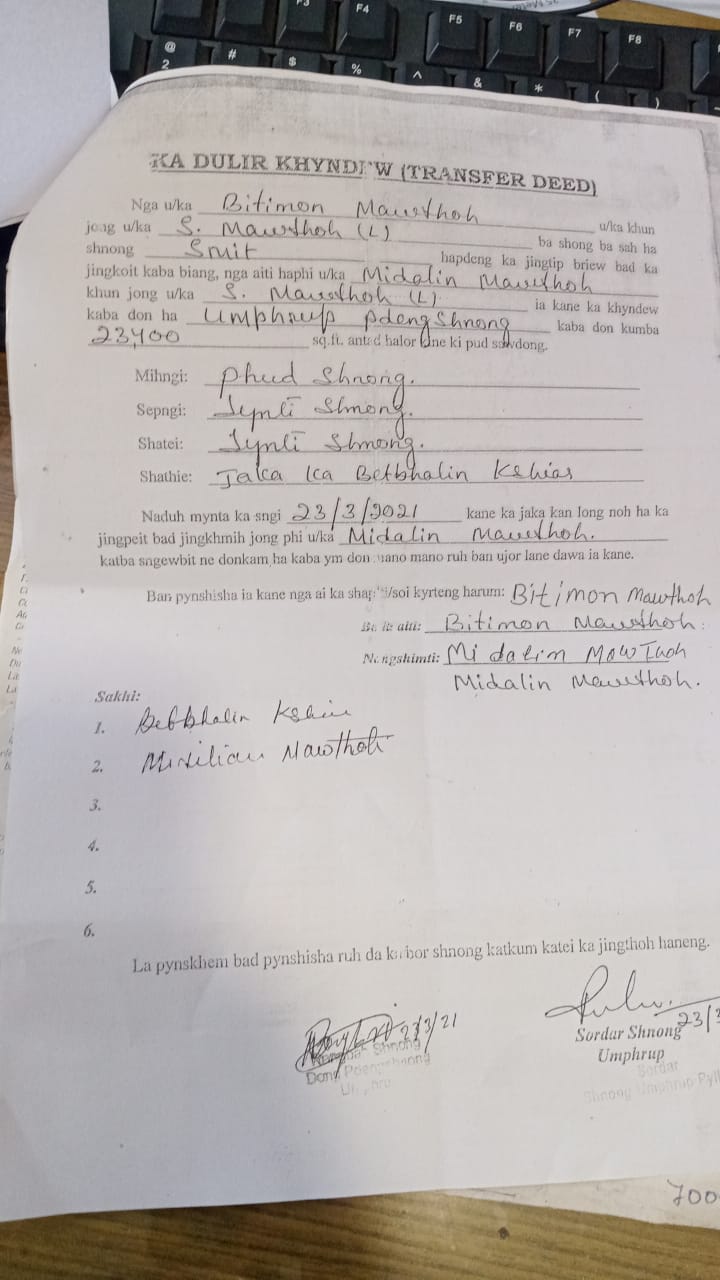 F3 F4 F5 F6 F7 F8
@ # $ % ^ & * ( )
2
KA DULIR KHYNDEW (TRANSFER DEED)
Nga u/ka Bitimon Mawthoh u/ka khun
jong u/ka S. Mawthoh (L) ba shong ba sah ha
shnong Smit hapdeng ka jingtip briew bad ka
jingkoit kaba biang, nga aiti haphi u/ka Midalin Mawthoh
khun jong u/ka S. Mawthoh (L). ia kane ka khyndew
kaba don ha Umphrup Pdengshnong kaba don kumba
23,400 sq.ft. halor kine ki pud sawdong.
Mihngi: Phud Shnong.
Sepngi: Synti Shnong.
Shatei: Synti Shnong.
Shathie: Jaka ka Betbhalin Kshiar
Naduh mynta ka sngi 23/3/2021 kane ka jaka kan long noh ha ka
jingpeit bad jingkhmih jong phi u/ka Midalin Mawthoh.
katba sngewbit ne donkam, ha kaba ym don mano mano ruh ban ujor lane dawa ia kane.
Ban pynshisha ia kane nga ai ka shap /soi kyrteng harum: Bitimon Mawthoh
aiti: Bitimon Mawthoh.
Nongshimti: Midalin Mawthoh
Midalin Mawthoh.
Sakhi:
1. Betbhalin Kshiar
2. Mawthoh
3.
4.
5.
6.
La pynskhem bad pynshisha ruh da ka bor shnong katkum katei ka jingthoh haneng.
23/3/21
Shnong
Dong Pdengshnong
23/3
Sordar Shnong
Umphrup
Sordar
Shnong Umphrup Pyll
700